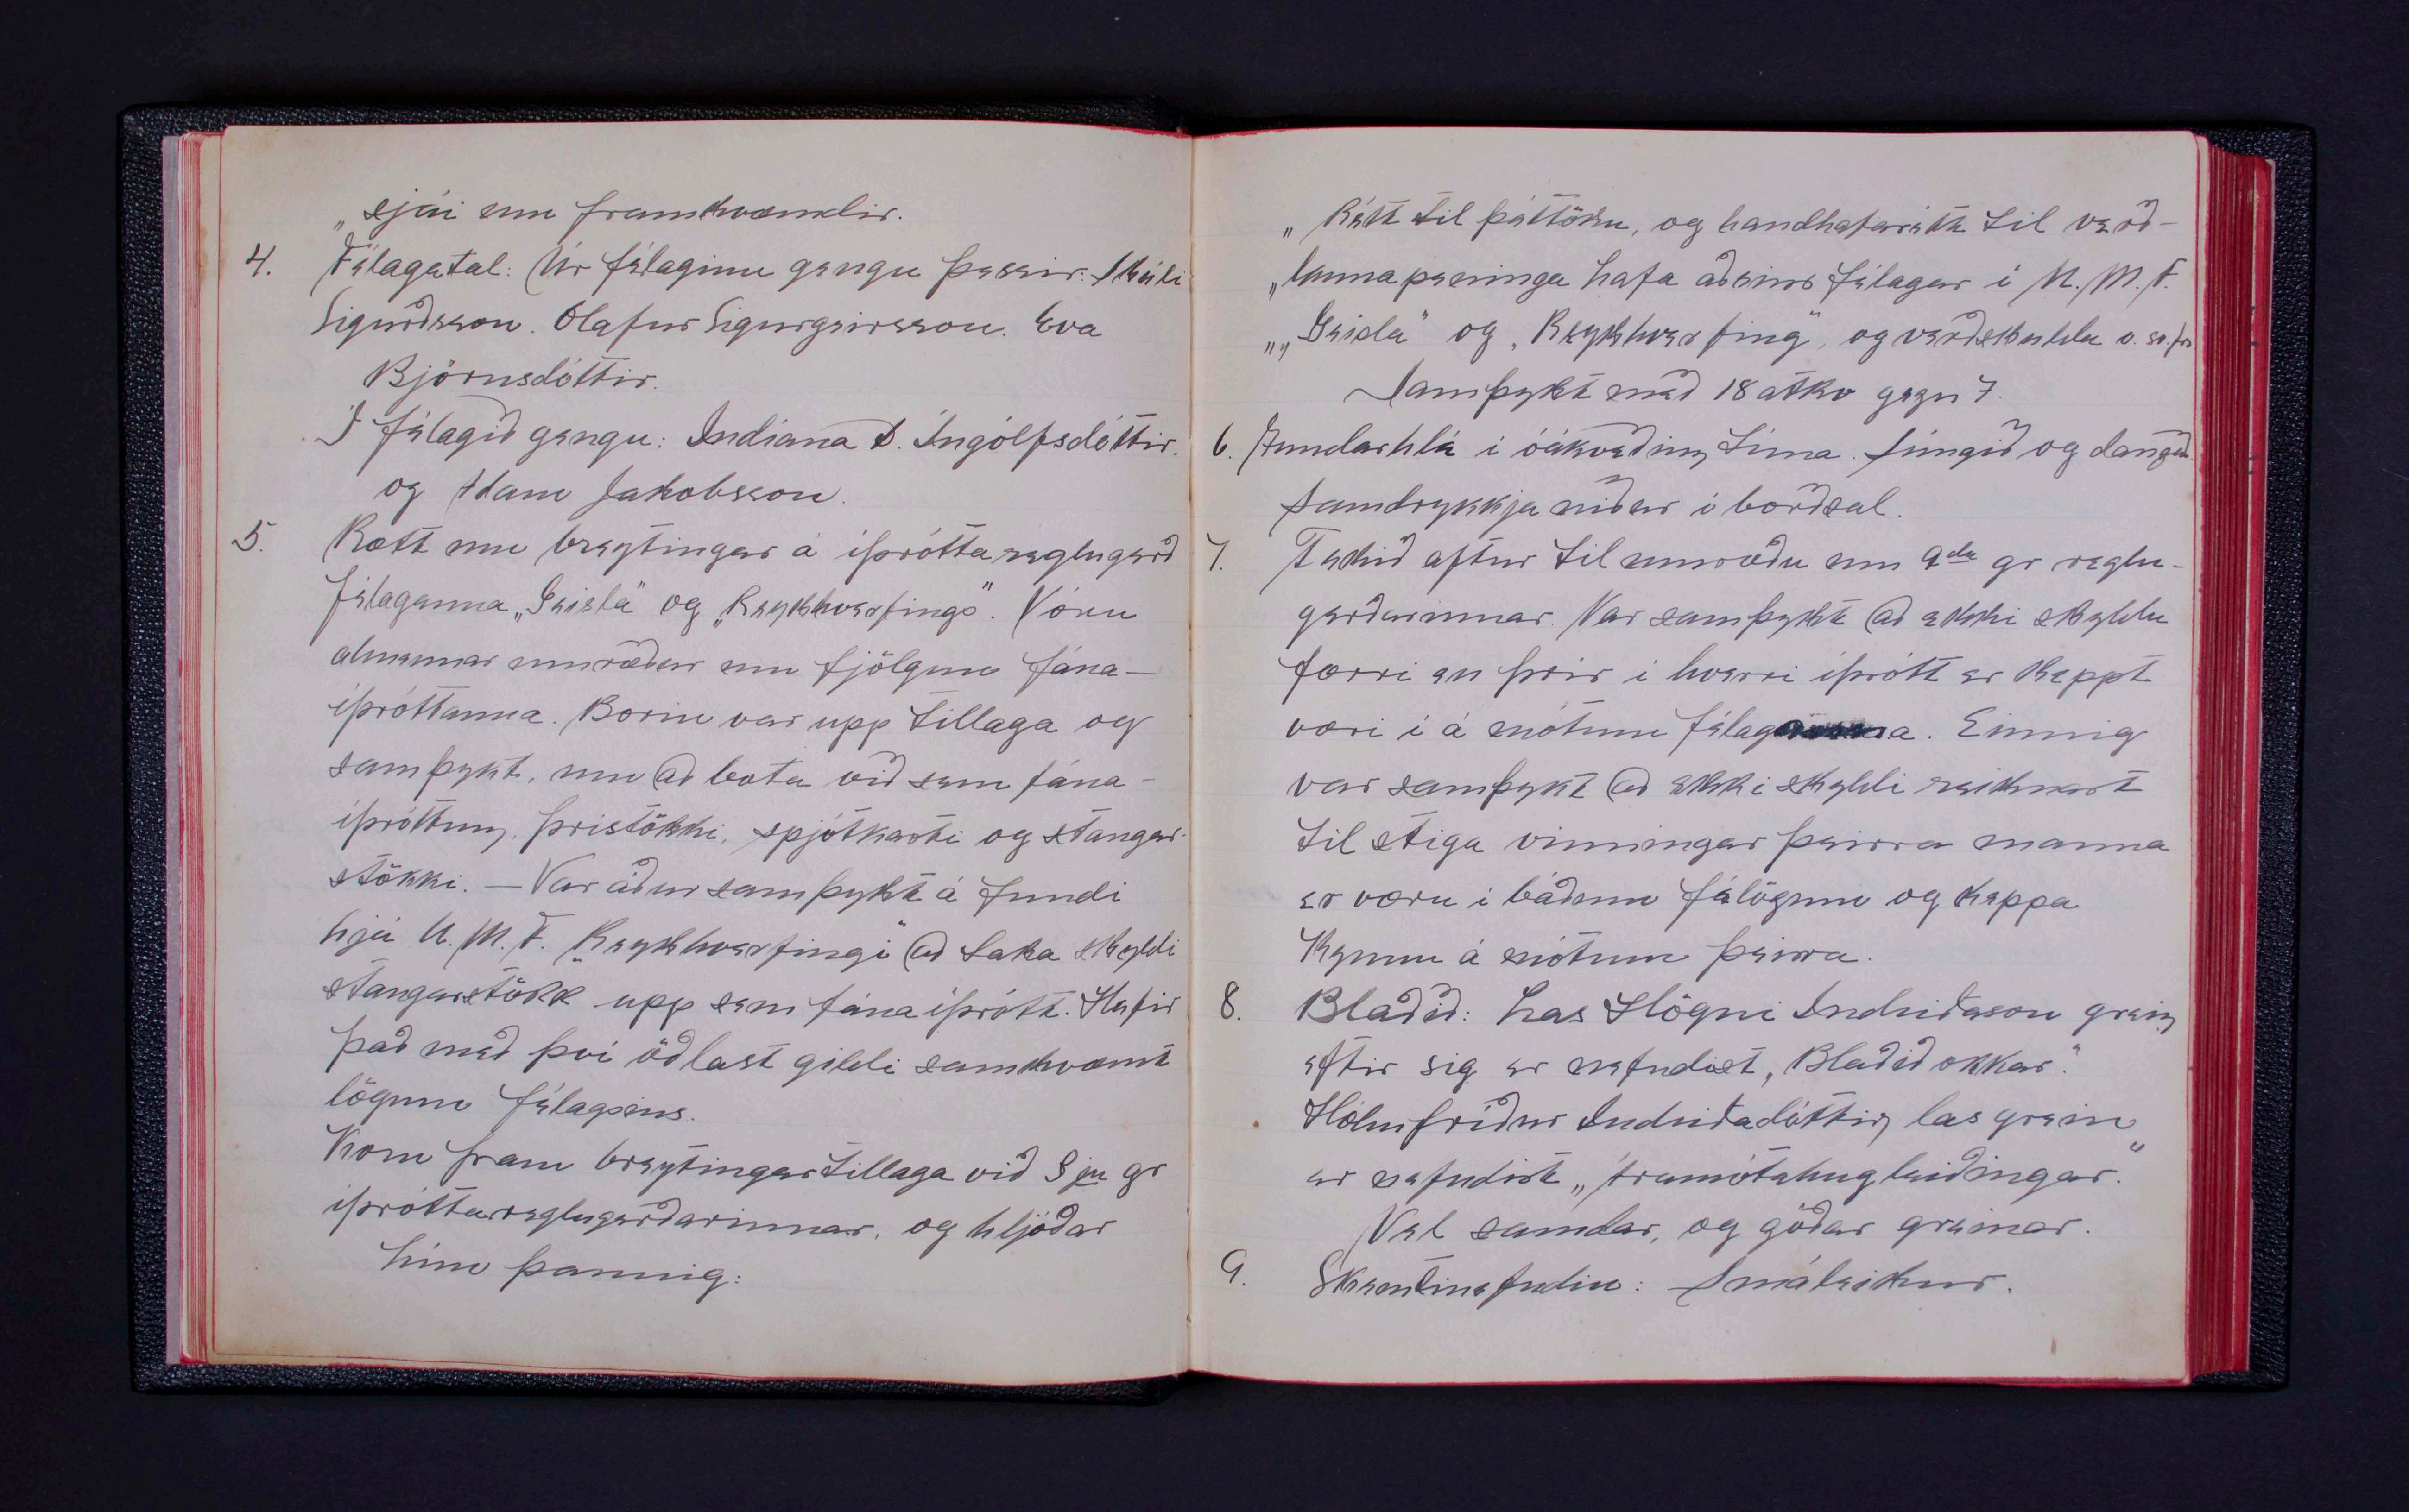 „sjái um framkvæmdir.
4. Félagatal: Úr félaginu gengu þessir: Skúli
Sigurðsson. Ólafur Sigurgeirsson. Eva
Björnsdóttir.
Í félagið gengu: Indíana D. Ingólfsdóttir.
og Adam Jakobsson.
5. Rætt um breytingar á íþróttareglugerð
félaganna „Geisla" og „Reykhverfings". Vóru
almennar umræður um fjölgun fána-
íþróttanna. Borin var upp tillaga og
samþykt, um að bæta við sem fána-
íþróttum, þrístökki, spjótkasti og stangar-
stökki. — Var áður samþykt á fundi
hjá U. M. F. „Reykhverfingi" að taka skyldi
stangarstökk upp sem fánaíþrótt. Hefir
það með því öðlast gildi samkvæmt
lögum félagsins.
Kom fram breytingartillaga við 3ju gr
íþróttareglugerðarinnar, og hljóðar
hún þannig:
„Rétt til þáttöku, og handhafarétt til verð-
„launapeninga hafa aðeins félagar í U. M. F.
„„Geisla" og „Reykhverfing", og verðskulda o. sv. fr
Samþykt með 18 atkv gegn 7.
6. Fundarhlé í óákveðinn tíma. Sungið og dansað
Samdrykkja niður í borðsal.
7. Tekið aftur til umræðu um 9du gr reglu-
gerðarinnar. Var samþykt að ekki skyldu
færri en þrír í hverri íþrótt er keppt
væri í á mótum félaganna. Einnig
var samþykt að ekki skyldi reiknast
til stiga vinningar þeirra manna
er væru í báðum félögum og keppa
kynnu á mótum þeirra.
8. Blaðið: Las Högni Indriðason grein
eftir sig er nefndist, „Blaðið okkar".
Hólmfríður Indriðadóttir, las grein
er nefndist „Áramótahugleiðingar."
Vel samdar, og góðar greinar.
9. Skemtinefndin: Smáleikur.